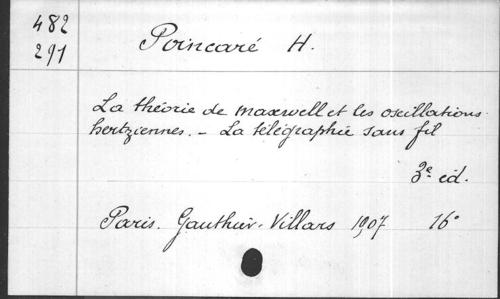 482
291
Poincaré H.
La théorie de Maxwell et les oscillations
hertziennes. - La télégraphie sans fil
3e éd.
Paris. Gauthier-Villars 1907 16°